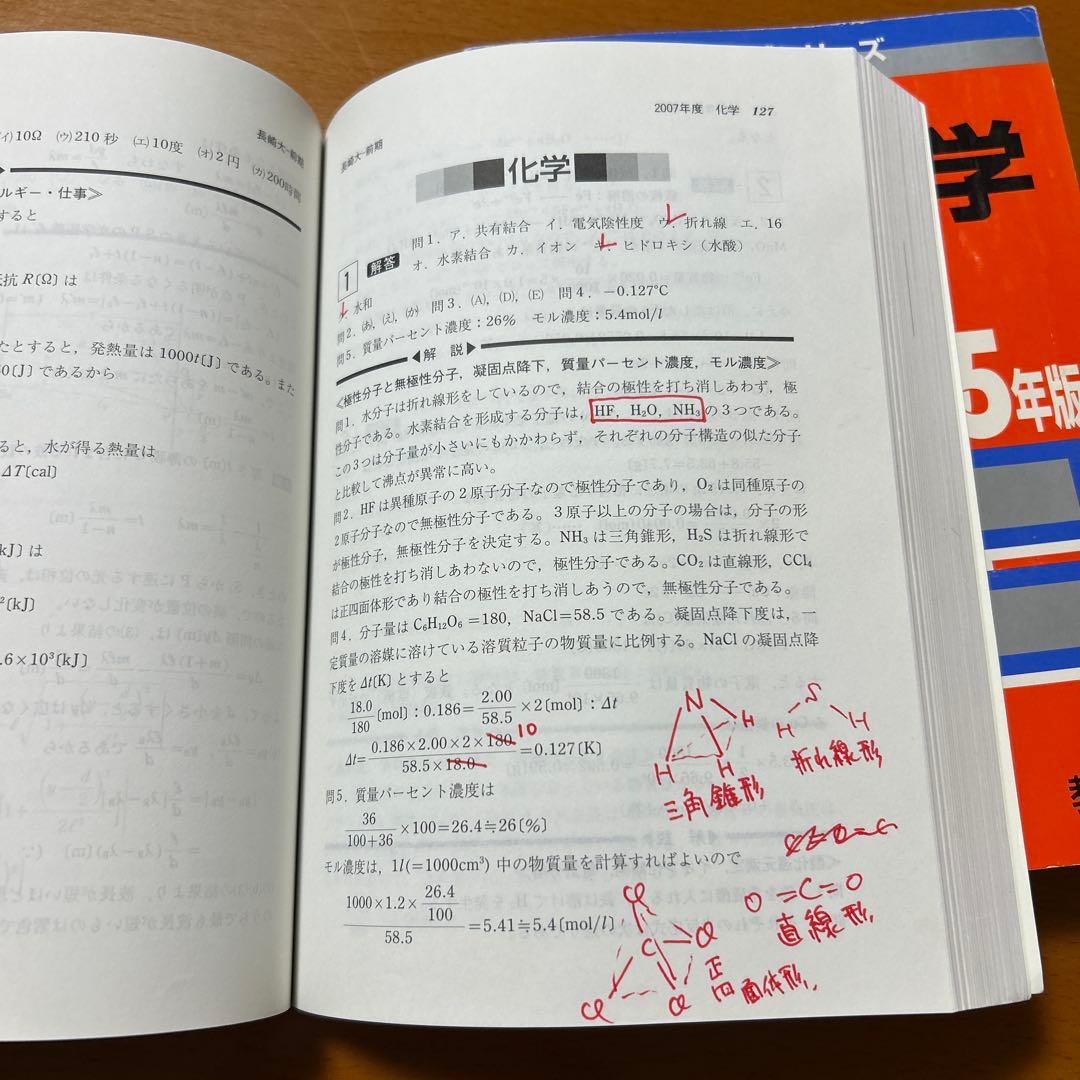 (イ)10Ω (ウ)210秒 (エ)10度 (オ)2円 (カ)200時間
長崎大-前期
ルギー・仕事≫
すると
抵抗R〔Ω〕は
たとすると，発熱量は1000t〔J〕である。また
0〔J〕であるから
ると，水が得る熱量は
ΔT〔cal〕
〔kJ〕は
²〔kJ〕
.6×10³〔kJ〕
2007年度 化学 127
長崎大-前期
化学
1 解答
問1．ア．共有結合 イ．電気陰性度 ウ．折れ線 エ．16
オ．水素結合 カ．イオン キ．ヒドロキシ（水酸）
ク．水和
問2．(あ)，(え)，(か) 問3．(A)，(D)，(E) 問4．−0.127℃
問5．質量パーセント濃度：26% モル濃度：5.4mol/l
◀解 説▶
≪極性分子と無極性分子，凝固点降下，質量パーセント濃度，モル濃度≫
問1．水分子は折れ線形をしているので，結合の極性を打ち消しあわず，極
性分子である。水素結合を形成する分子は，HF，H₂O，NH₃の3つである。
この3つは分子量が小さいにもかかわらず，それぞれの分子構造の似た分子
と比較して沸点が異常に高い。
問2．HFは異種原子の2原子分子なので極性分子であり，O₂は同種原子の
2原子分子なので無極性分子である。3原子以上の分子の場合は，分子の形
が極性分子，無極性分子を決定する。NH₃は三角錐形，H₂Sは折れ線形で
結合の極性を打ち消しあわないので，極性分子である。CO₂は直線形，CCl₄
は正四面体形であり結合の極性を打ち消しあうので，無極性分子である。
問4．分子量はC₆H₁₂O₆=180，NaCl=58.5である。凝固点降下度は，一
定質量の溶媒に溶けている溶質粒子の物質量に比例する。NaClの凝固点降
下度をΔt〔K〕とすると
18.0/180〔mol〕：0.186=2.00/58.5×2〔mol〕：Δt
10
Δt=0.186×2.00×2×180/58.5×18.0=0.127〔K〕
問5．質量パーセント濃度は
36/100+36×100=26.4≒26〔%〕
モル濃度は，1l(=1000cm³)中の物質量を計算すればよいので
1000×1.2×26.4/100/58.5=5.41≒5.4〔mol/l〕
N
H H H
三角錐形
S
H H
折れ線形
O=C=O
直線形
Cl
C Cl
Cl Cl
正四面体形
ズ
学
5年版